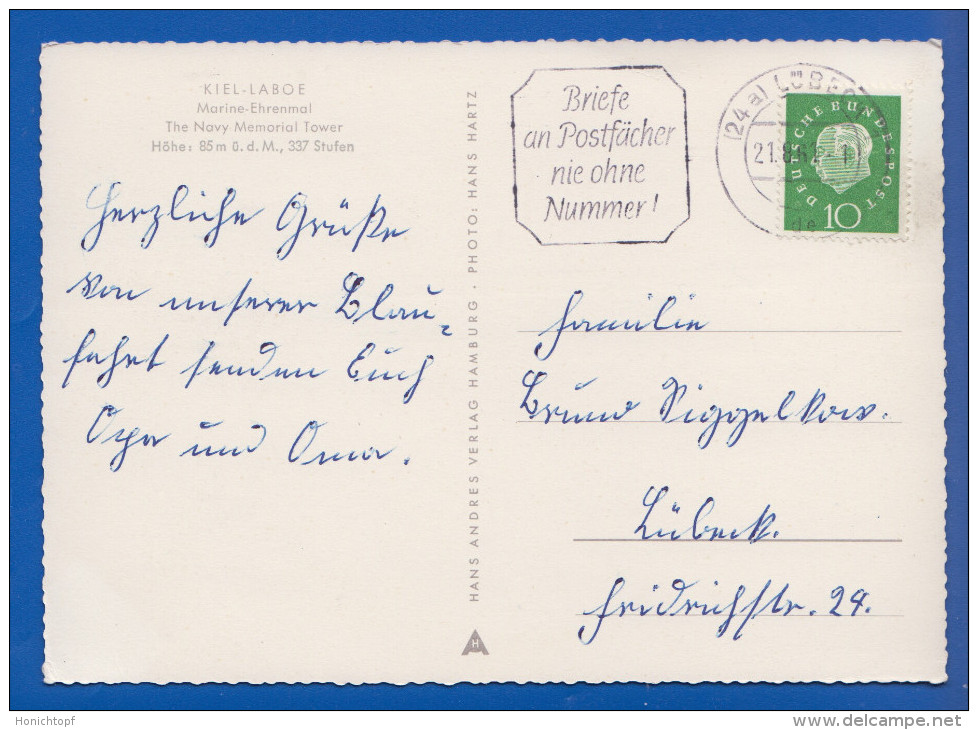 KIEL-LABOE
Marine-Ehrenmal
The Navy Memorial Tower
Höhe: 85 m ü. d. M., 337 Stufen
Herzliche Grüße
von unserer Blau-
fahrt senden Euch
Opa und Oma.
HANS ANDRES VERLAG HAMBURG · PHOTO: HANS HARTZ
H
Briefe
an Postfächer
nie ohne
Nummer!
(24a) LÜBECK
21.8.61
DEUTSCHE BUNDESPOST
10
Familie
Bruno Siggelkow.
Lübeck.
Fridrichstr. 24.
Honichtopf
www.delcampe.net